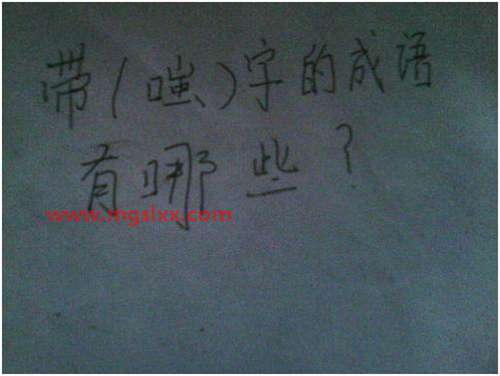 带(嗤)字的成语
有哪些?
www.mgslxx.com